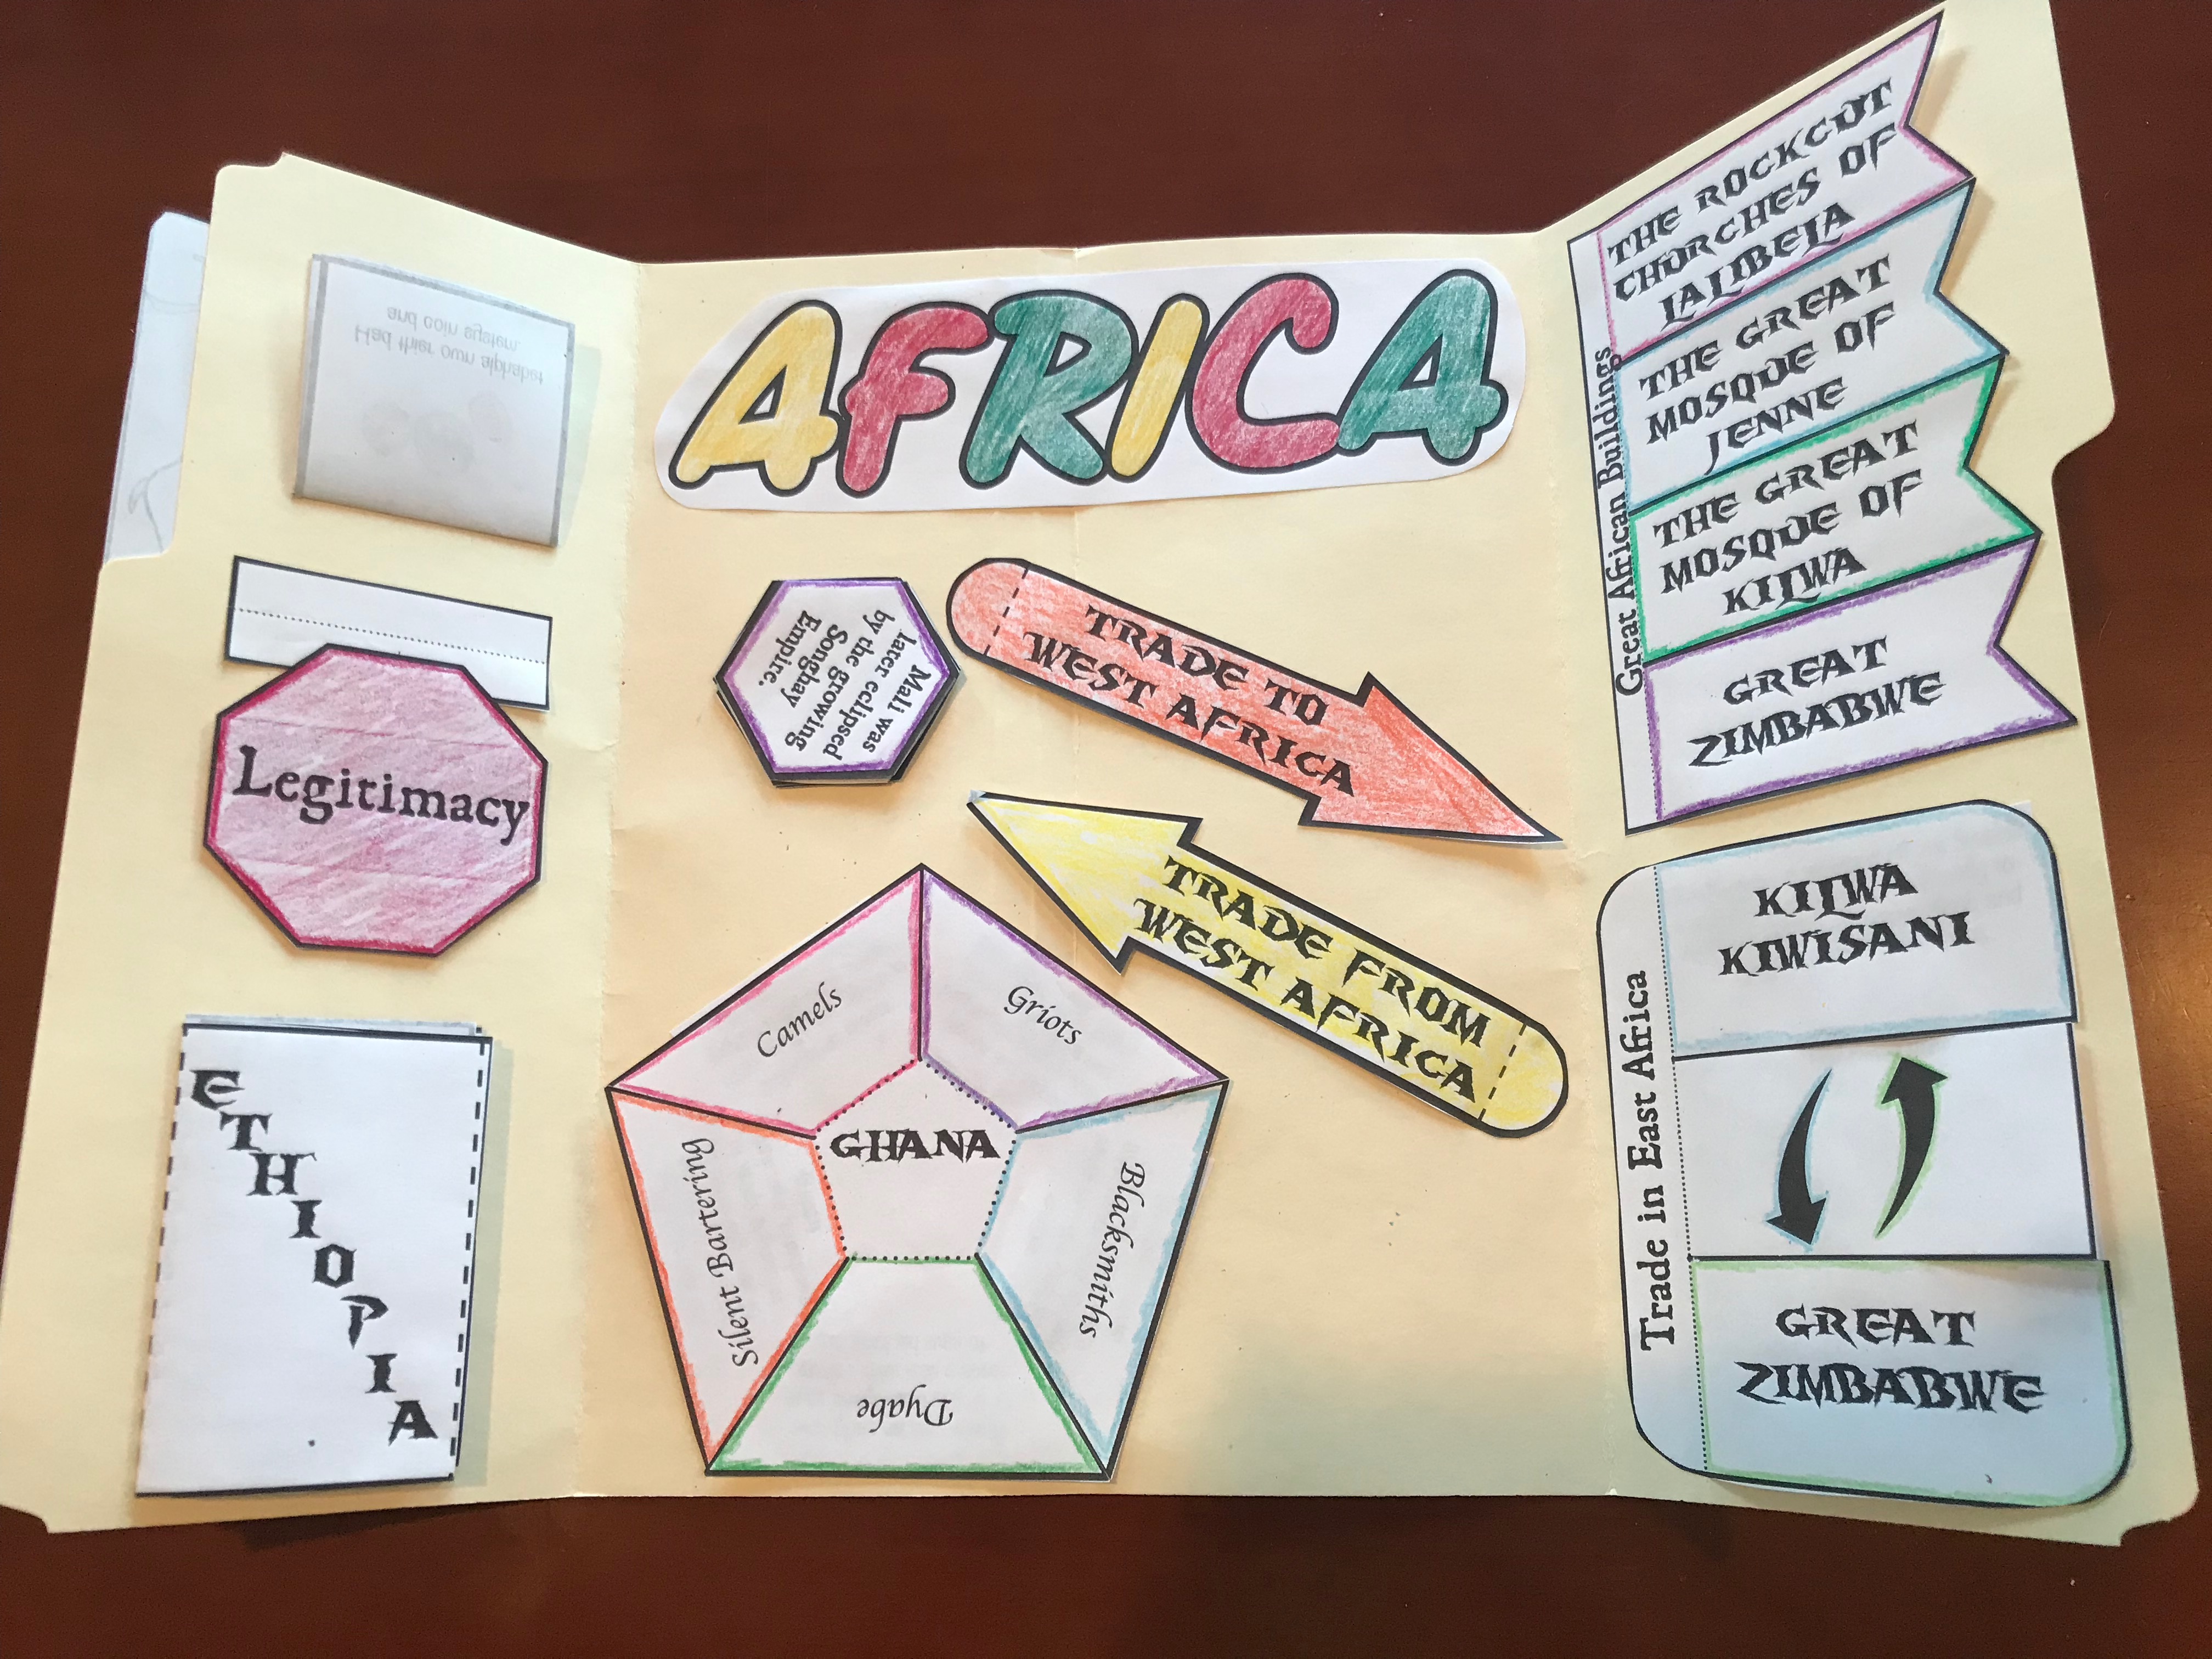 and coin system.
Had thier own alphabet
Legitimacy
ETHIOPIA
AFRICA
Mali was
later eclipsed
by the growing
Songhay
Empire.
TRADE TO
WEST AFRICA
TRADE FROM
WEST AFRICA
Camels
Griots
GHANA
Silent Bartering
Blacksmiths
Dyabe
Great African Buildings
THE ROCKCUT
CHURCHES OF
LALIBELA
THE GREAT
MOSQUE OF
JENNE
THE GREAT
MOSQUE OF
KILWA
GREAT
ZIMBABWE
Trade in East Africa
KILWA
KIWISANI
GREAT
ZIMBABWE